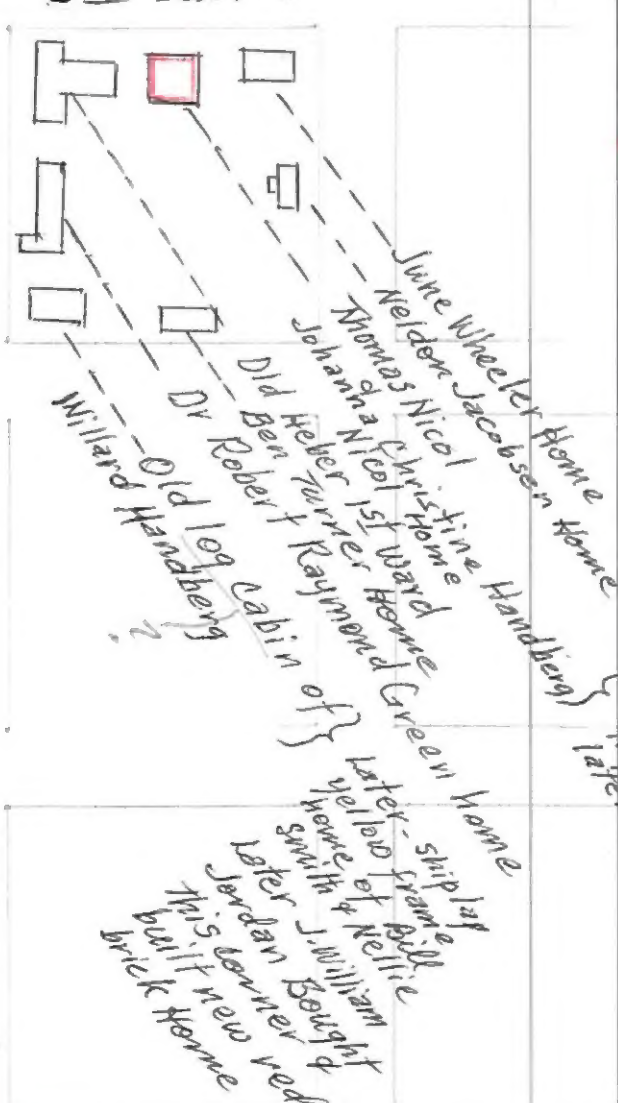 June Wheeler Home
Neldon Jacobsen Home
Thomas Nicol
&
Johanna Christine Handberg }
Nicol Home
Old Heber 1st Ward
Ben Turner Home
Dr Robert Raymond Green home
Old log cabin of }
Willard Handberg
?
Later - shiplap
yellow frame
home of Bill
Smith & Nellie
Later J. William
Jordan Bought
This corner &
built new red
brick Home